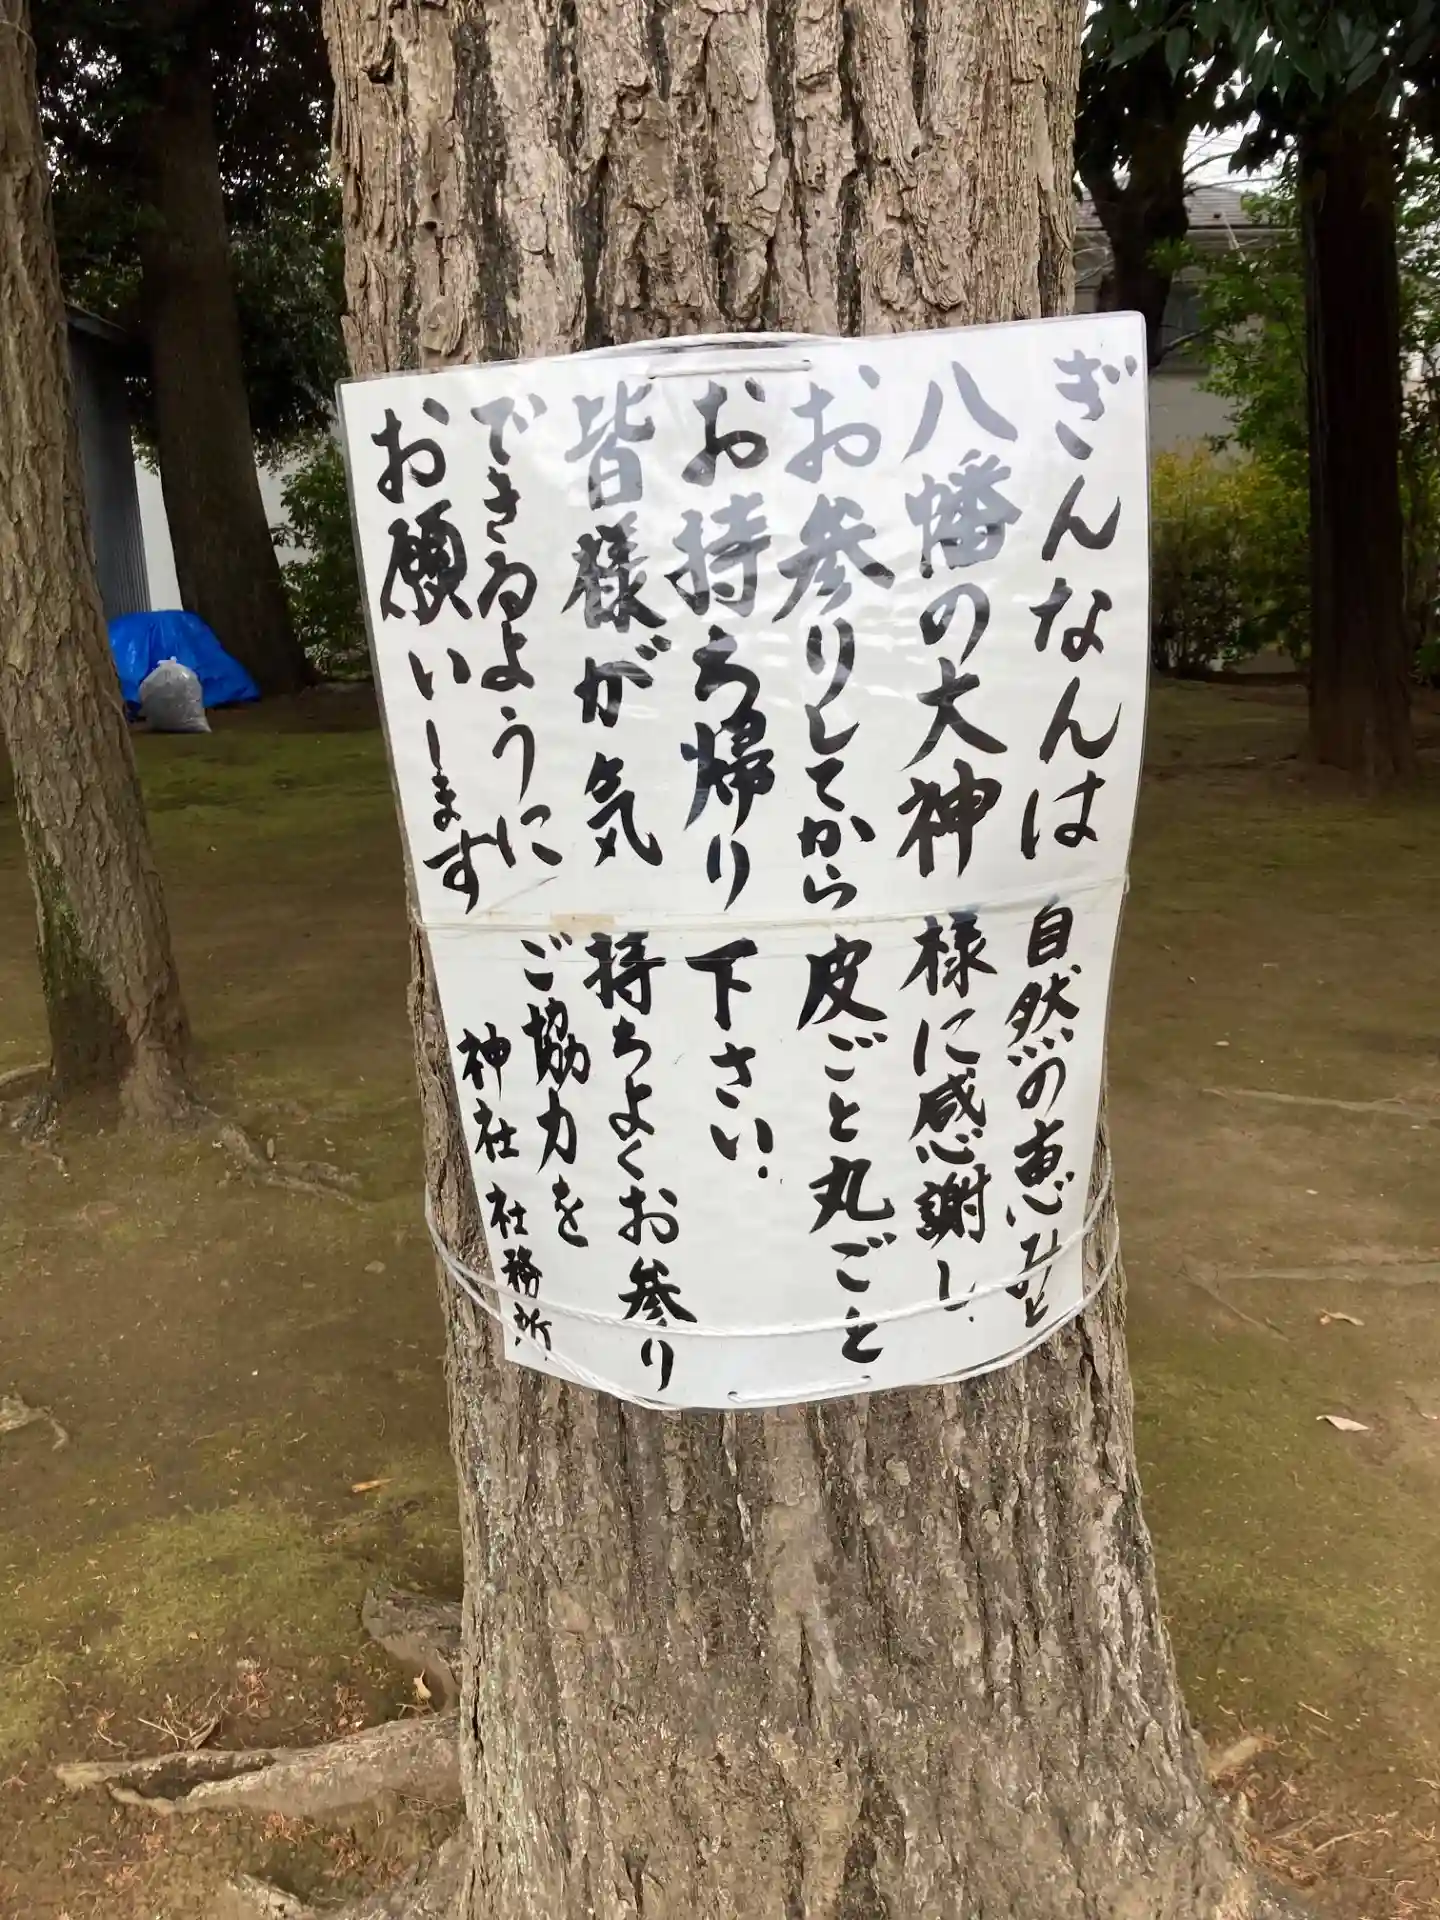 ぎんなんは自然の恵みと
八幡の大神様に感謝し、
お参りしてから皮ごと丸ごと
お持ち帰り下さい、
皆様が気持ちよくお参り
できるようにご協力を
お願いします
神社社務所